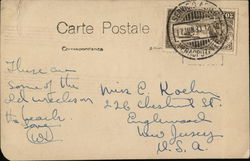 Carte Postale
Correspondance
These are
some of the
old wrecks on
the beach.
Love
Miss E. Koehn
226 Chestnut St.
Englewood
New Jersey
U.S.A.